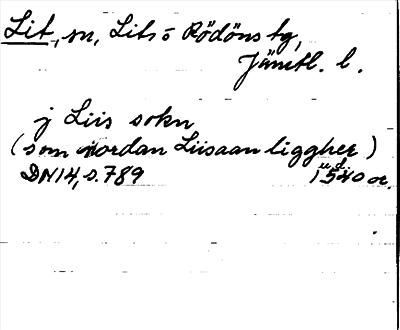 Lit, sn, Lits o Rödöns tg,
Jämtl. l.
j Liis sokn
(som nordan Liisaan liggher)
DN 14, s. 789 1540 u.d. or.